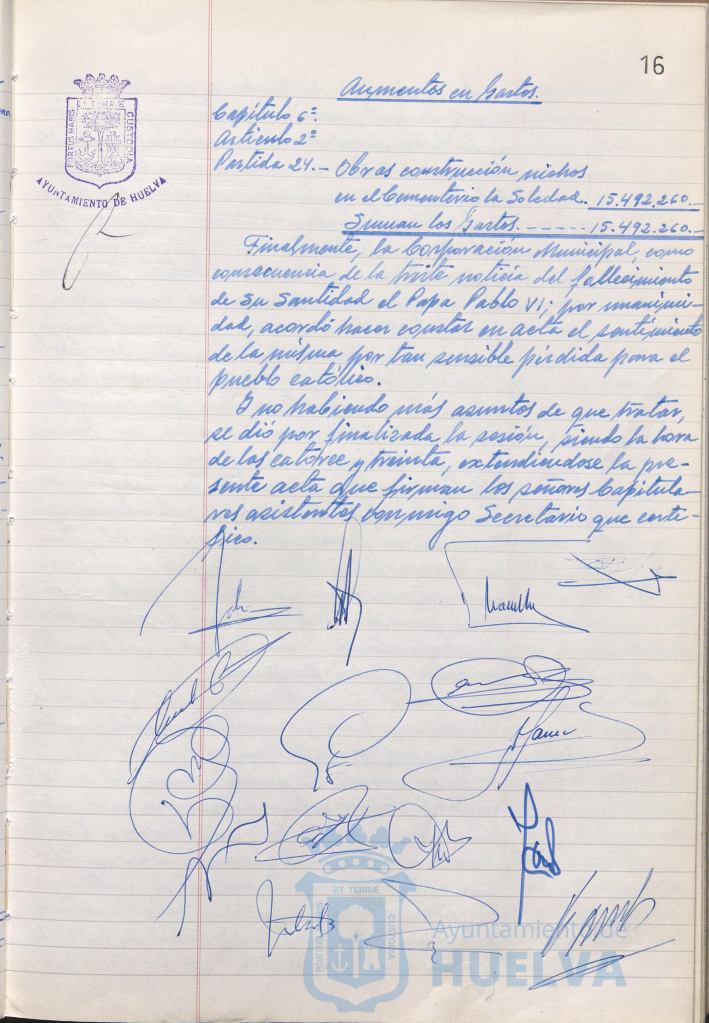 16
Aumentos en Gastos.
Capítulo 6º.
Artículo 2º
Partida 24.- Obras construcción nichos
en el Cementerio la Soledad. 15.492.260.-
Suman los Gastos.----- 15.492.260.-
Finalmente, la Corporación Municipal, como
consecuencia de la triste noticia del fallecimiento
de Su Santidad el Papa Pablo VI; por unanimi-
dad, acordó hacer constar en acta el sentimiento
de la misma por tan sensible pérdida para el
pueblo católico.
Y no habiendo más asuntos de que tratar,
se dió por finalizada la sesión, siendo la hora
de las catorce y treinta, extendiéndose la pre-
sente acta que firman los señores Capitula-
res asistentes conmigo Secretario que certi-
fico.
ET TERRÆ
PORTUS MARIS
CUSTODIA
AYUNTAMIENTO DE HUELVA
ET TERRÆ
PORTUS MARIS
CUSTODIA
Ayuntamiento de
HUELVA